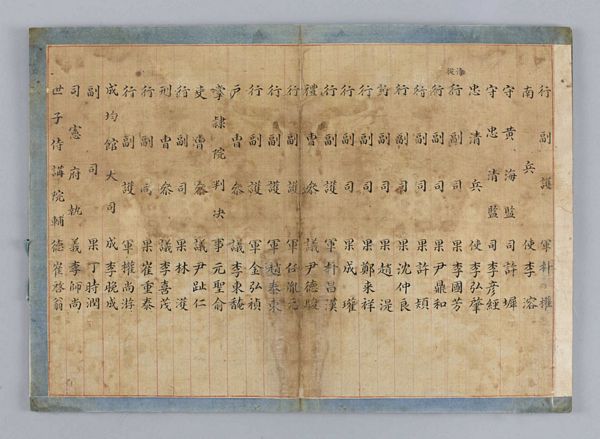 行副護軍朴權
南兵使李溶
守黃海監司許墀
守忠清監司李彥經
忠清兵使李弘肇
行副司果李國芳
行副司果尹鼎和
行副司果許熲
行副司果沈仲良
行副司果趙湜
行副司果鄭來祥
行副司果成瓘
行副護軍朴昌漢
禮曹參議尹德駿
行副護軍任胤元
行副護軍趙泰東
行副護軍金弘楨
戶曹參議李東馣
掌隸院判决事元聖俞
吏曹參議尹趾仁
行副司果林濩
刑曹參議李喜茂
行副司果崔重泰
行副護軍權尚游
成均館大司成李晚成
副司果丁時潤
司憲府執義李師尚
世子侍講院輔德崔啓翁